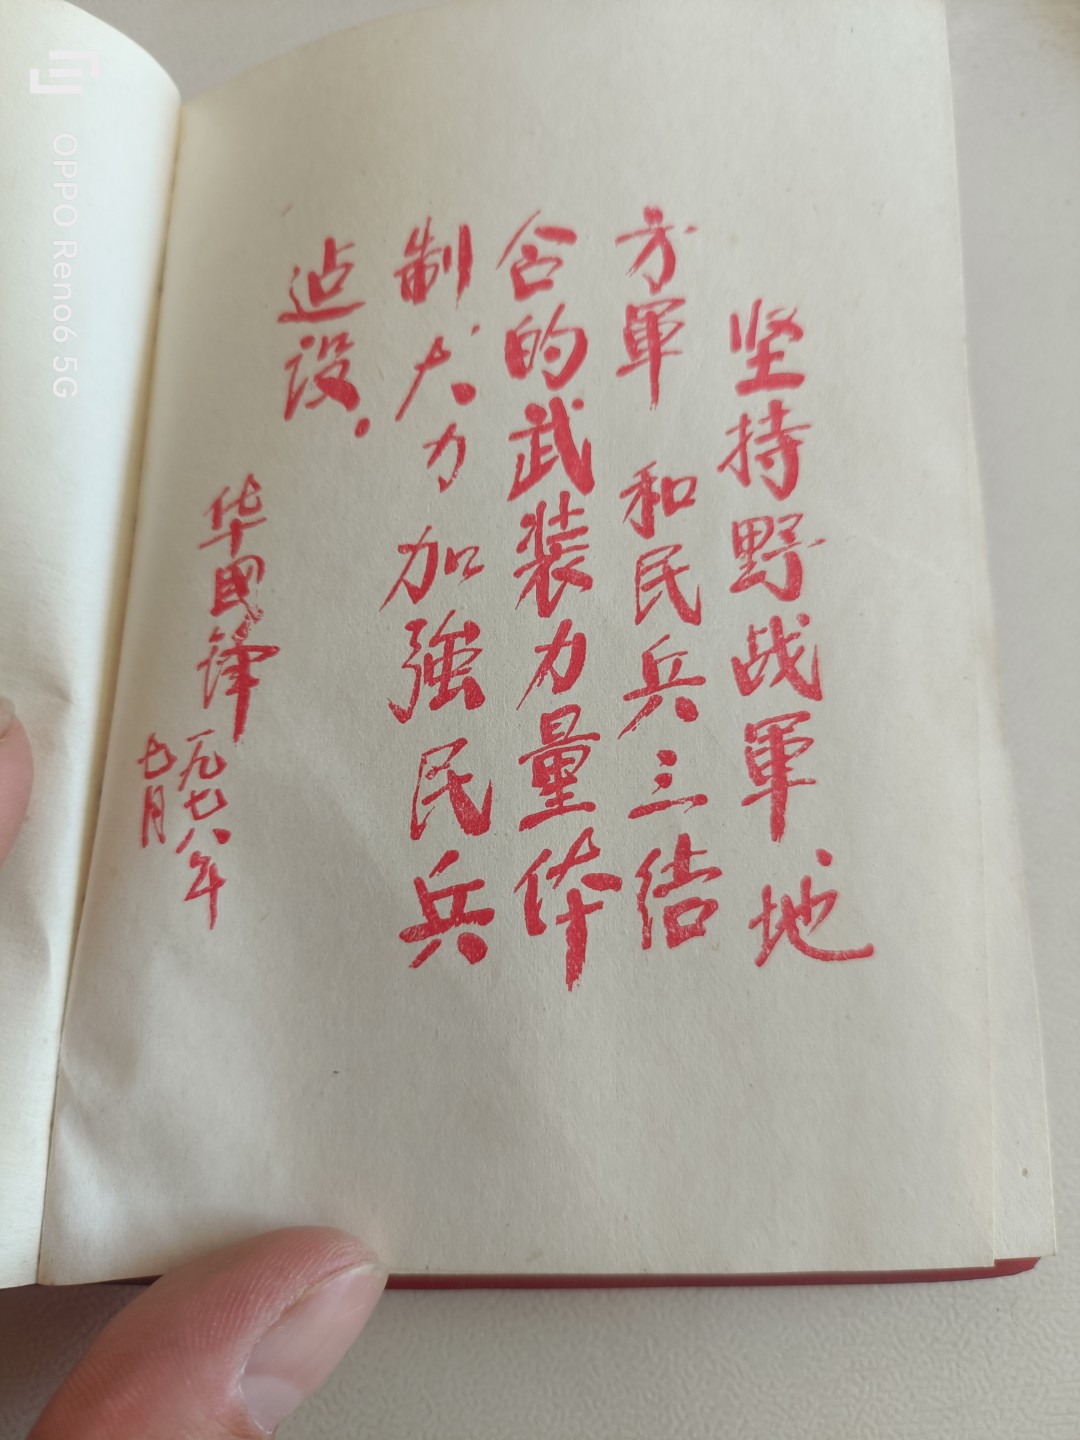 坚持野战軍、地
方軍和民兵三结
合的武装力量体
制、大力加強民兵
迠设。
华國锋
一九七八年
七月
OPPO Reno6 5G